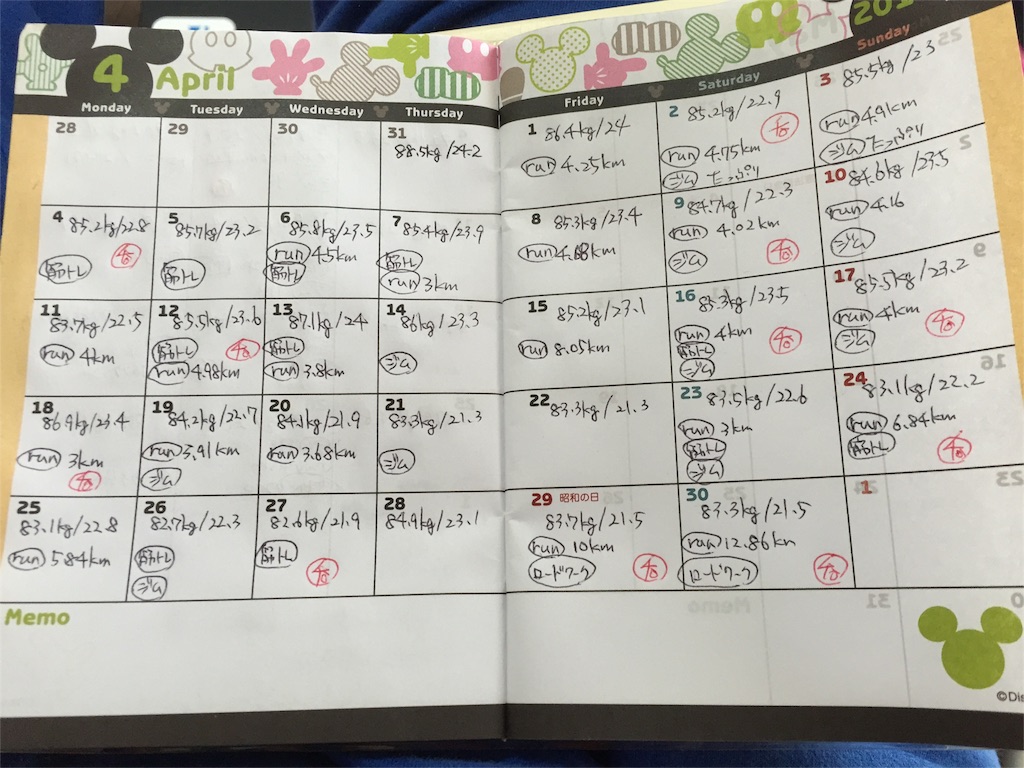 4
April
201
Monday
Tuesday
Wednesday
Thursday
Friday
Saturday
Sunday
28
29
30
31
88.5kg/24.2
1
86.4kg/24
run 4.25km
2
85.2kg/22.9
run 4.75km
ジム たっぷり
3
85.5kg/23
run 4.91km
ジム たっぷり
4
85.2kg/22.8
筋トレ
5
85.7kg/23.2
筋トレ
6
85.8kg/23.5
run 4.5km
筋トレ
7
85.4kg/23.9
筋トレ
run 3km
8
85.3kg/23.4
run
9
84.7kg/22.3
run 4.02km
ジム
10
84.6kg/23.5
run 4.16
ジム
11
83.7kg/22.5
run 4km
12
85.5kg/23.6
筋トレ
run 4.98km
13
87.1kg/24
筋トレ
run 3.8km
14
86kg/23.3
ジム
15
85.2kg/23.1
run 8.05km
16
85.3kg/23.5
run 4km
筋トレ
ジム
17
85.5kg/23.2
run 4km
ジム
18
86.9kg/23.4
run 3km
19
84.2kg/22.7
run 3.91km
ジム
20
84.1kg/21.9
run 3.68km
21
83.3kg/21.3
ジム
22
83.3kg/21.3
23
83.5kg/22.6
run 3km
筋トレ
ジム
24
83.1kg/22.2
run 6.84km
筋トレ
25
83.1kg/22.8
run 5.84km
26
82.7kg/22.3
筋トレ
ジム
27
82.6kg/21.9
筋トレ
28
84.9kg/23.1
29 昭和の日
83.7kg/21.5
run 10km
ロードワーク
30
83.3kg/21.5
run 12.86km
ロードワーク
1
Memo
©Dis